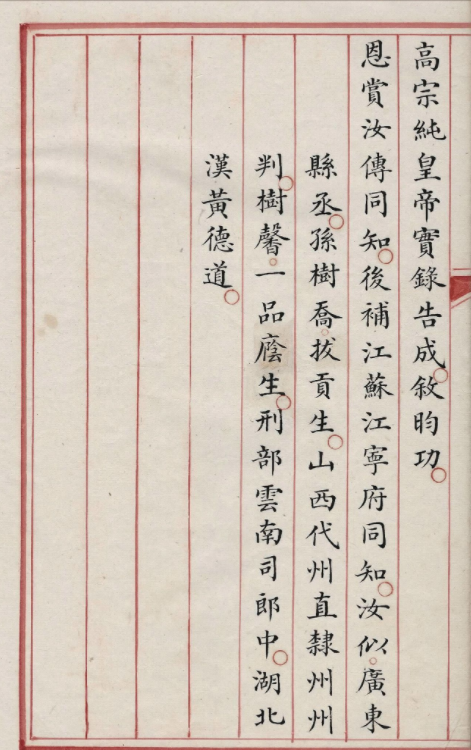 高宗純皇帝實錄告成。敘昀功。
恩賞汝傳同知。後補江蘇江寧府同知。汝似。廣東
縣丞。孫樹喬。拔貢生。山西代州直隸州州
判。樹馨。一品廕生。刑部雲南司郎中。湖北
漢黃德道。